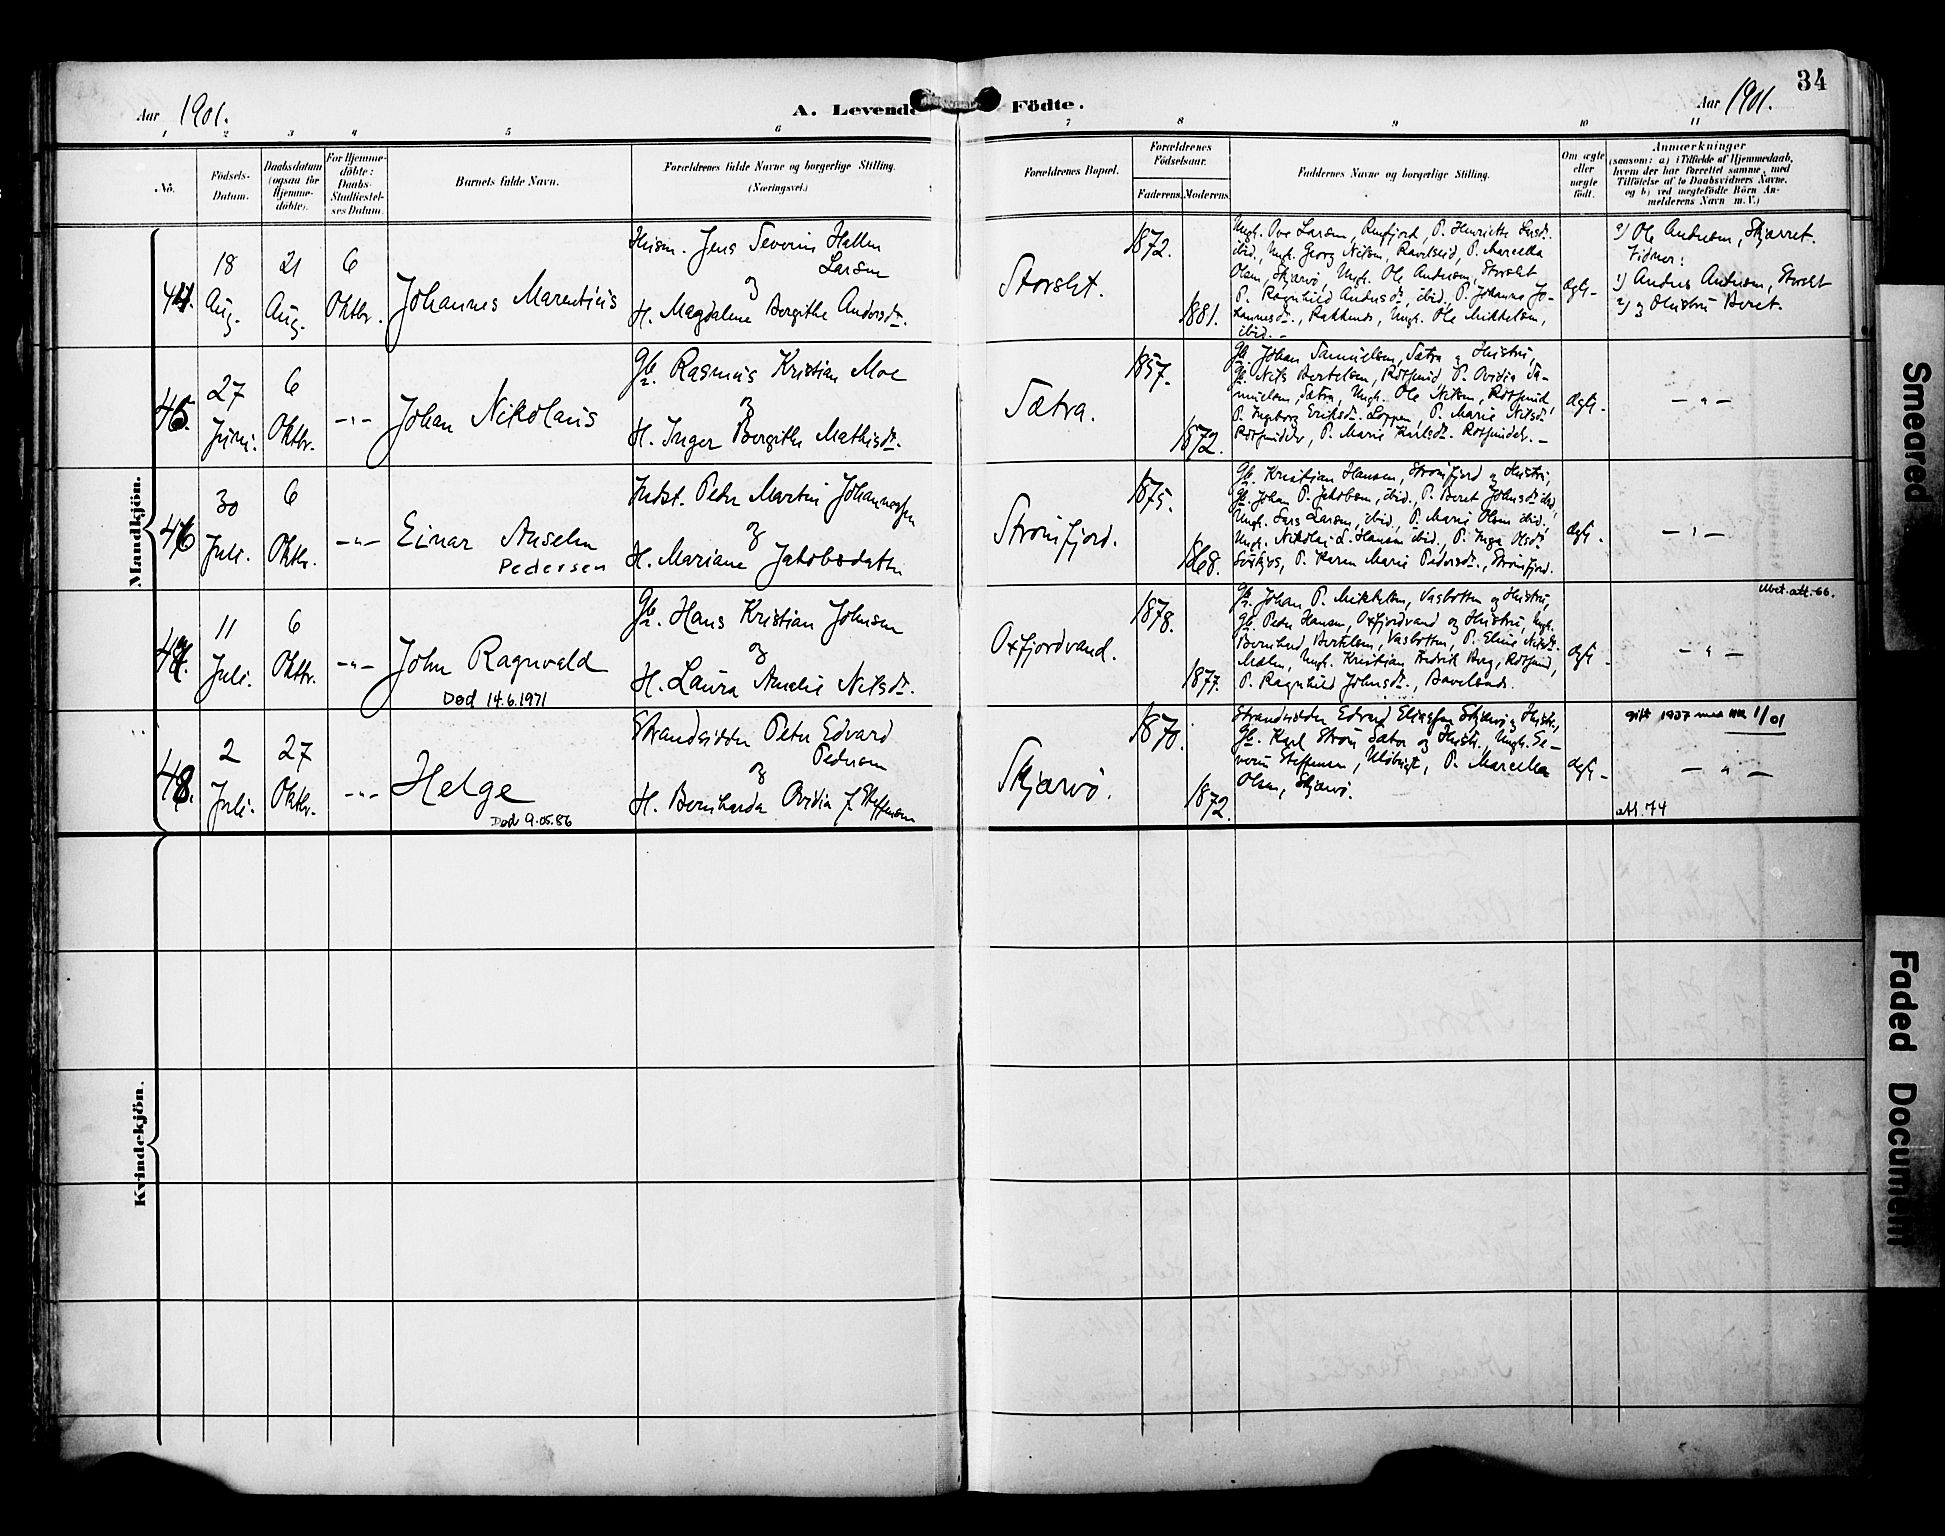 34
Aar 1901.
A. Levende Födte.
Aar 1901.
1 2 3 4 5 6 7 8 9 10 11
No.
Födsels-
Datum.
Daabsdatum
(ogsaa for
Hjemme-
döbte).
For Hjemme-
döbte:
Daabs-
Stadfæstel-
ses Datum.
Barnets fulde Navn.
Forældrenes fulde Navne og borgerlige Stilling.
(Næringsvei.)
Forældrenes Bopæl.
Forældrenes
Födselsaar.
Faderens. Moderens.
Faddernes Navne og borgerlige Stilling.
Om ægte
eller
uægte
født.
Anmærkninger
(saasom: a) i Tilfælde af Hjemmedaab,
hvem der har forrettet samme, med
Tilföielse af to Daabsvidners Navne,
og b) ved uægtefödte Börn An-
melderens Navn m. V.)
Mandkjön.
44.
18
Aug.
21
Aug.
6
Oktbr.
Johannes Marentius
Husm. Jens Severin Hallen
Larsen
og
H. Magdalene Bergithe Andersdr.
Storslet.
1872.
1881.
Ungk. Ove Larsen, P. Henriette
ibid., Ungk. Georg Nilsen, Ravelseid, P. Marcella
Olsen, Skjærvø, Ungk. Ole Andersen, Storslet
P. Ragnhild Andersdr., ibid., P. Johanna Jo-
Ungk. Ole Mikkelsen,
ibid. -
ægte -
Ole Andersen,
Vidner:
1) Anders Andersen, Storslet
2) og Hustru Beret.
45.
27
Juni.
6
Oktbr.
- " -
Johan Nikolaus
Gbr. Rasmus Kristian Moe
og
H. Inger Bergithe Mathisdr.
Sætra.
1857.
1872.
Gbr. Johan Samuelsen, Sætra og Hustru,
Gbr. Nils Bertelsen, Rotsund, P. Ovidia Sa-
muelsen, Sætra, Ungk. Ole Nilsen, Rotsund,
P. Ingeborg Eriksdr. Loppen, P. Marie Nilsdr.
P. Marie Karlsdr.
ægte -
- " -
46
30
Juli.
6
Oktbr.
- " -
Einar Anselm
Pedersen
Indst. Peder Martin Johannessen
og
H. Mariane Jakobsdatter
Straumfjord.
1875.
1868.
Gbr. Kristian Hansen, Straumfjord og Hustru,
Gbr. Johan P. Jakobsen, ibid., P. Beret Johnsdr. ibid.,
Ungk. Lars Larsen, ibid., P. Marie Olsen ibid.,
Ungk. Nikolai L. Hansen ibid., P. Inga Olsdr.
P. Karen Marie Pedersdr., Straumfjord.
ægte -
- " -
47.
11
Juli.
6
Oktbr.
- " -
John Ragnvald
Død 14.6.1971
Gbr. Hans Kristian Johnsen
og
H. Laura Amalie Nilsdr.
Oxfjordvand.
1878.
1877.
Gbr. Johan P. Mikkelsen, Vasbotten og Hustru,
Gbr. Peder Hansen, Oxfjordvand og Hustru, Ungk.
Bernhard Bertelsen, Vasbotten, P. Eline Nilsdr.
Ungk. Kristian Fredrik Berg, Rotsund,
P. Ragnhild Johnsdr.,
ægte -
att. 66.
- " -
48.
2
Juli.
27
Oktbr.
- " -
Helge
Død 9.05.86
Strandsidder Peder Edvard
Pedersen
og
H. Bernharda Ovidia J. Steffensen
Skjærvø.
1870.
1872.
Strandsidder Edvard Eliassen Skjærvø og Hustr.,
Gbr. Karl Strøm Sætra og Hustr., Ungk. Se-
verin Steffensen, P. Marcella
Olsen, Skjærvø.
ægte -
gift 1937 med nr. 1/01
- " -
att. 74
Kvindekjön.
Smeared
Faded Document